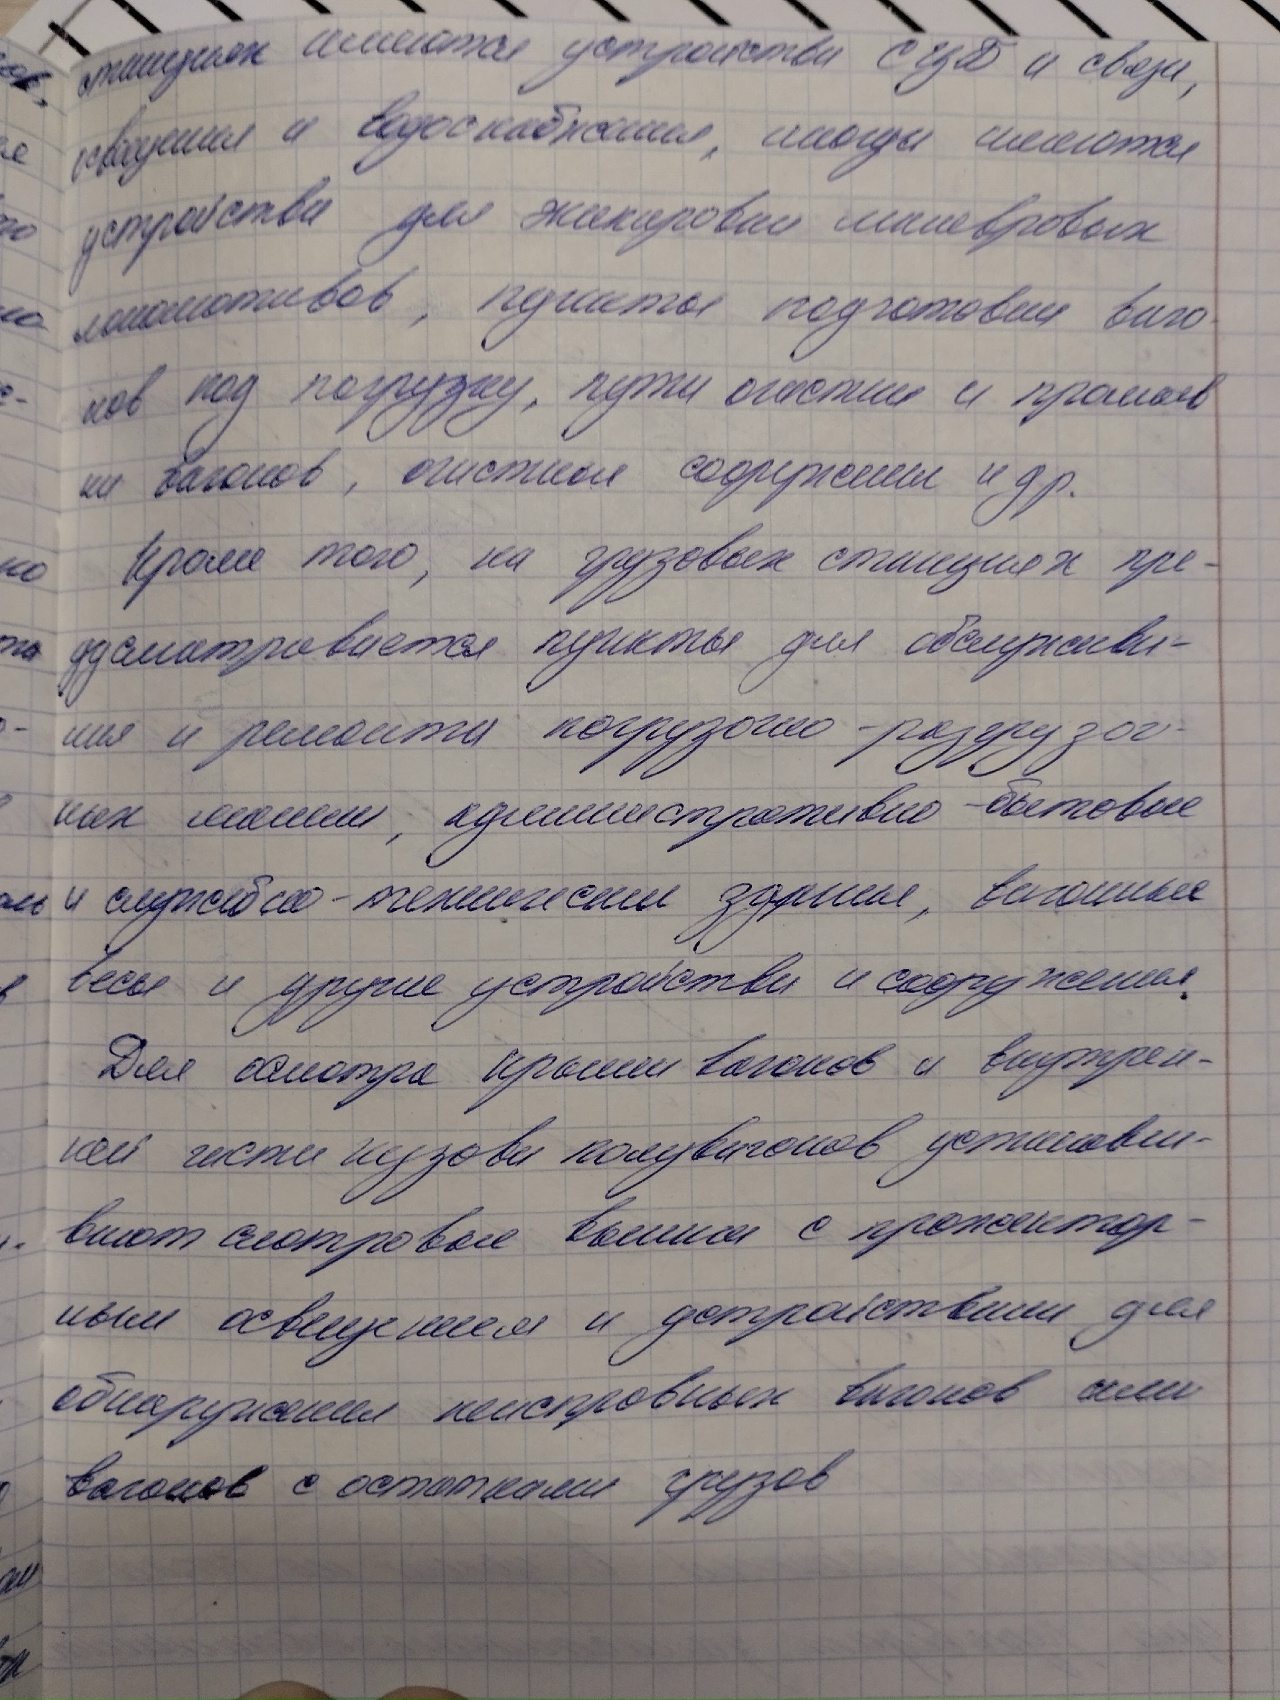 станциях имеются устройства СЦБ и связи,
освещения и водоснабжения, иногда имеются
устройства для экипировки маневровых
локомотивов, пункты подготовки ваго-
нов под погрузку, пути очистки и промыв
ки вагонов, очистные сооружения и др.
Кроме того, на грузовых станциях пре-
дусматривается пункты для обслужива-
ния и ремонта погрузочно-разгрузоч-
ных машин, административно-бытовые
и служебно-технические здания, вагонные
весы и другие устройства и сооружения.
Для осмотра крыши вагонов и внутрен-
ней части кузова полувагонов устанавли-
вают смотровые вышки с прожектор-
ным освещением и устройствами для
обнаружения неисправных вагонов или
вагонов с остатками грузов